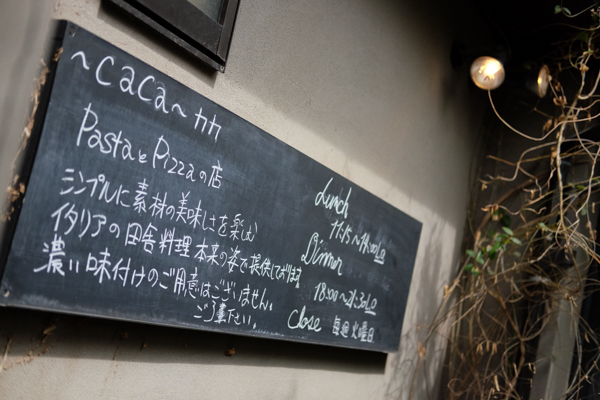 ~CaCa~カカ
PastaとPizzaの店
シンプルに素材の美味しさを楽しむ
イタリアの田舎料理本来の姿で提供しております
濃い味付けのご用意はございません。
ご了承下さい。
Lunch
11:15~14:00LO
Dinner
18:00~21:30LO
Close 毎週火曜日